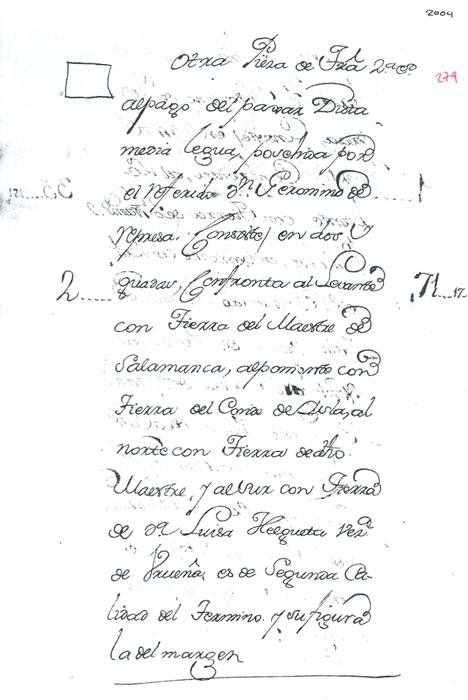 2004
Otra Pieza de Trâ 2.ª
279
al pago del parrar Dista
media legua, pochesa por
el Referido Dn. Geronimo de
Represa. Consiste en dos
2 guadas, Confronta al Levante 71 17
con Tierra del Maestre de
Salamanca, al poniente con
Tierra del Conde de Lula, al
norte con Tierra de dho.
Maestre, y al sur con Tierra
de Dª Luisa Helgueta Vezª
de Brueña, es de Segunda Ca-
lidad del Termino. y su figura
la del margen